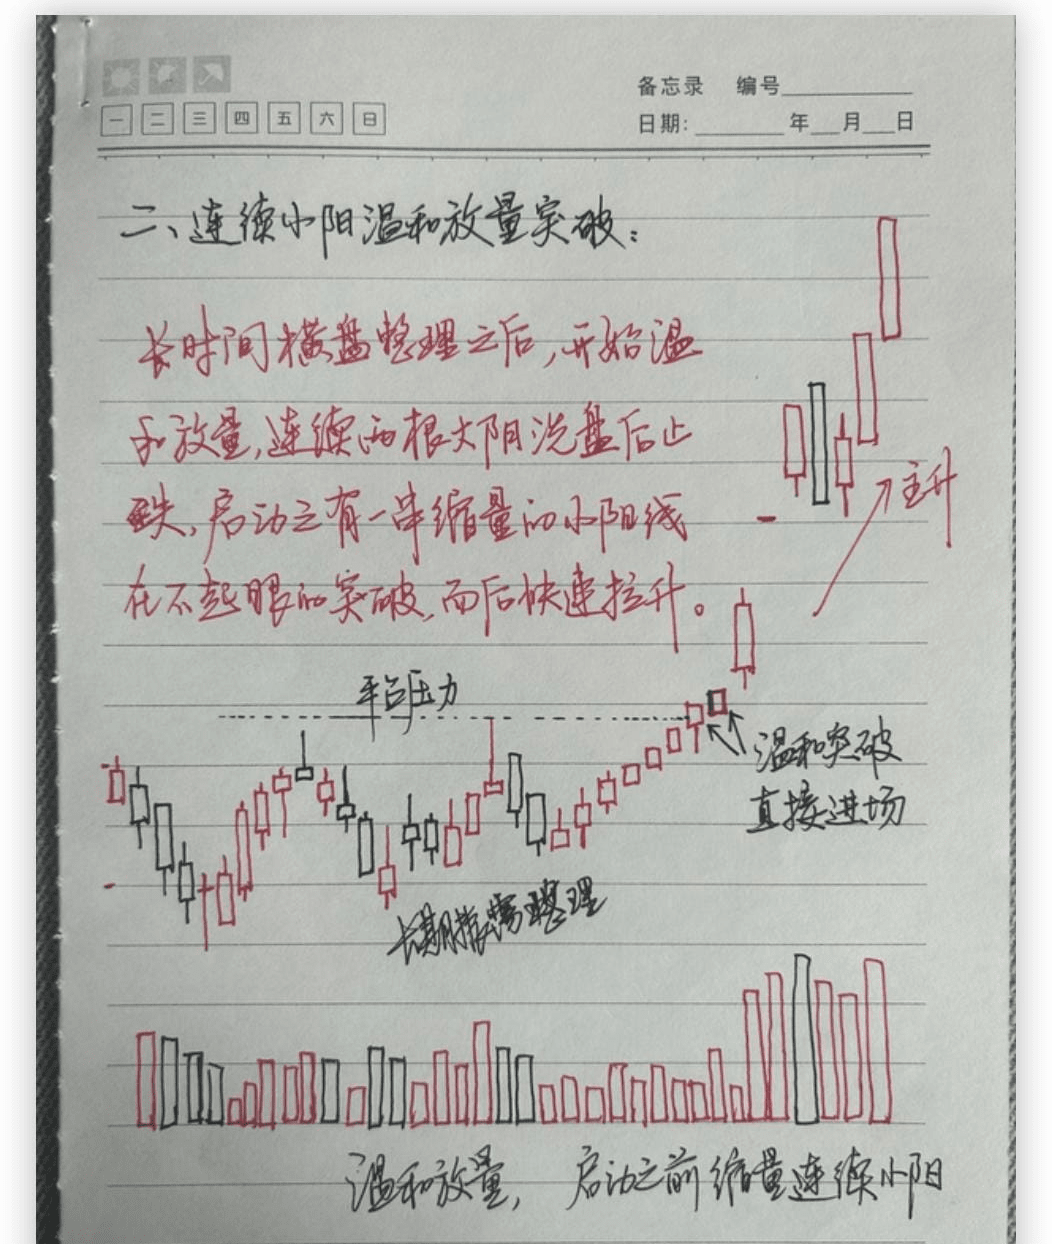 备忘录 编号
一 二 三 四 五 六 日
日期: 年 月 日
二、连续小阳温和放量突破:
长时间横盘整理之后,开始温
和放量,连续两根大阴洗盘后止
跌,启动之有一串缩量的小阳线
在不起眼的突破,而后快速拉升。
主升
平台压力
温和突破
直接进场
长期震荡整理
温和放量, 启动之前缩量连续小阳